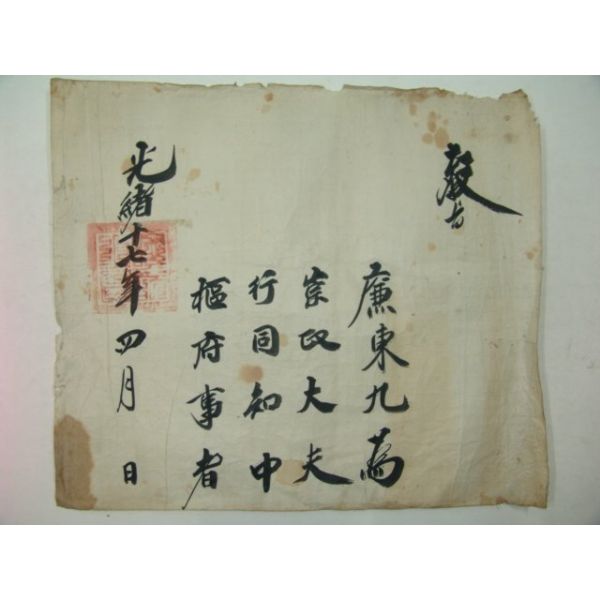 教旨
廉東九為
崇政大夫
行同知中
樞府事者
光緒十七年四月 日